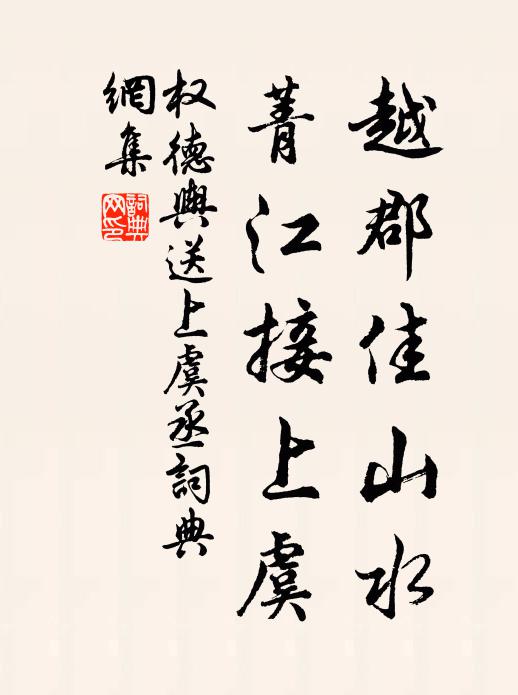 越郡佳山水
菁江接上虞
权德輿送上虞丞詞典
網集
詞典
网印